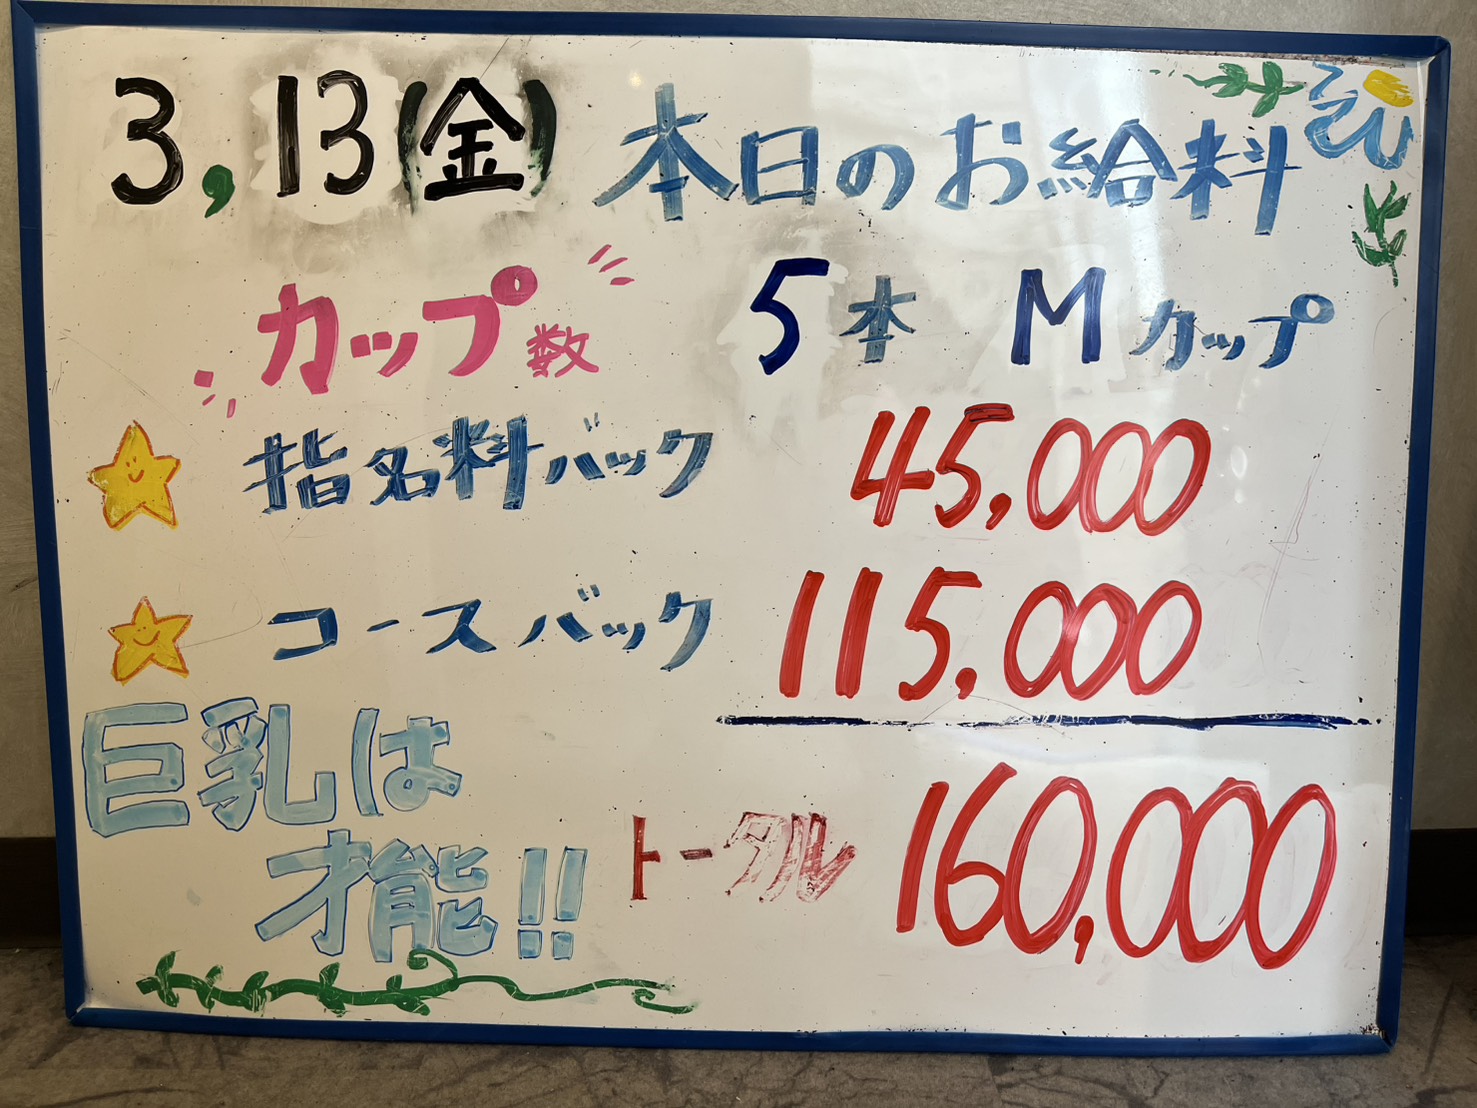 3,13(金) 本日のお給料
カップ数 5本 Mカップ
指名料バック 45,000
コースバック 115,000
巨乳は
才能!!
トータル 160,000